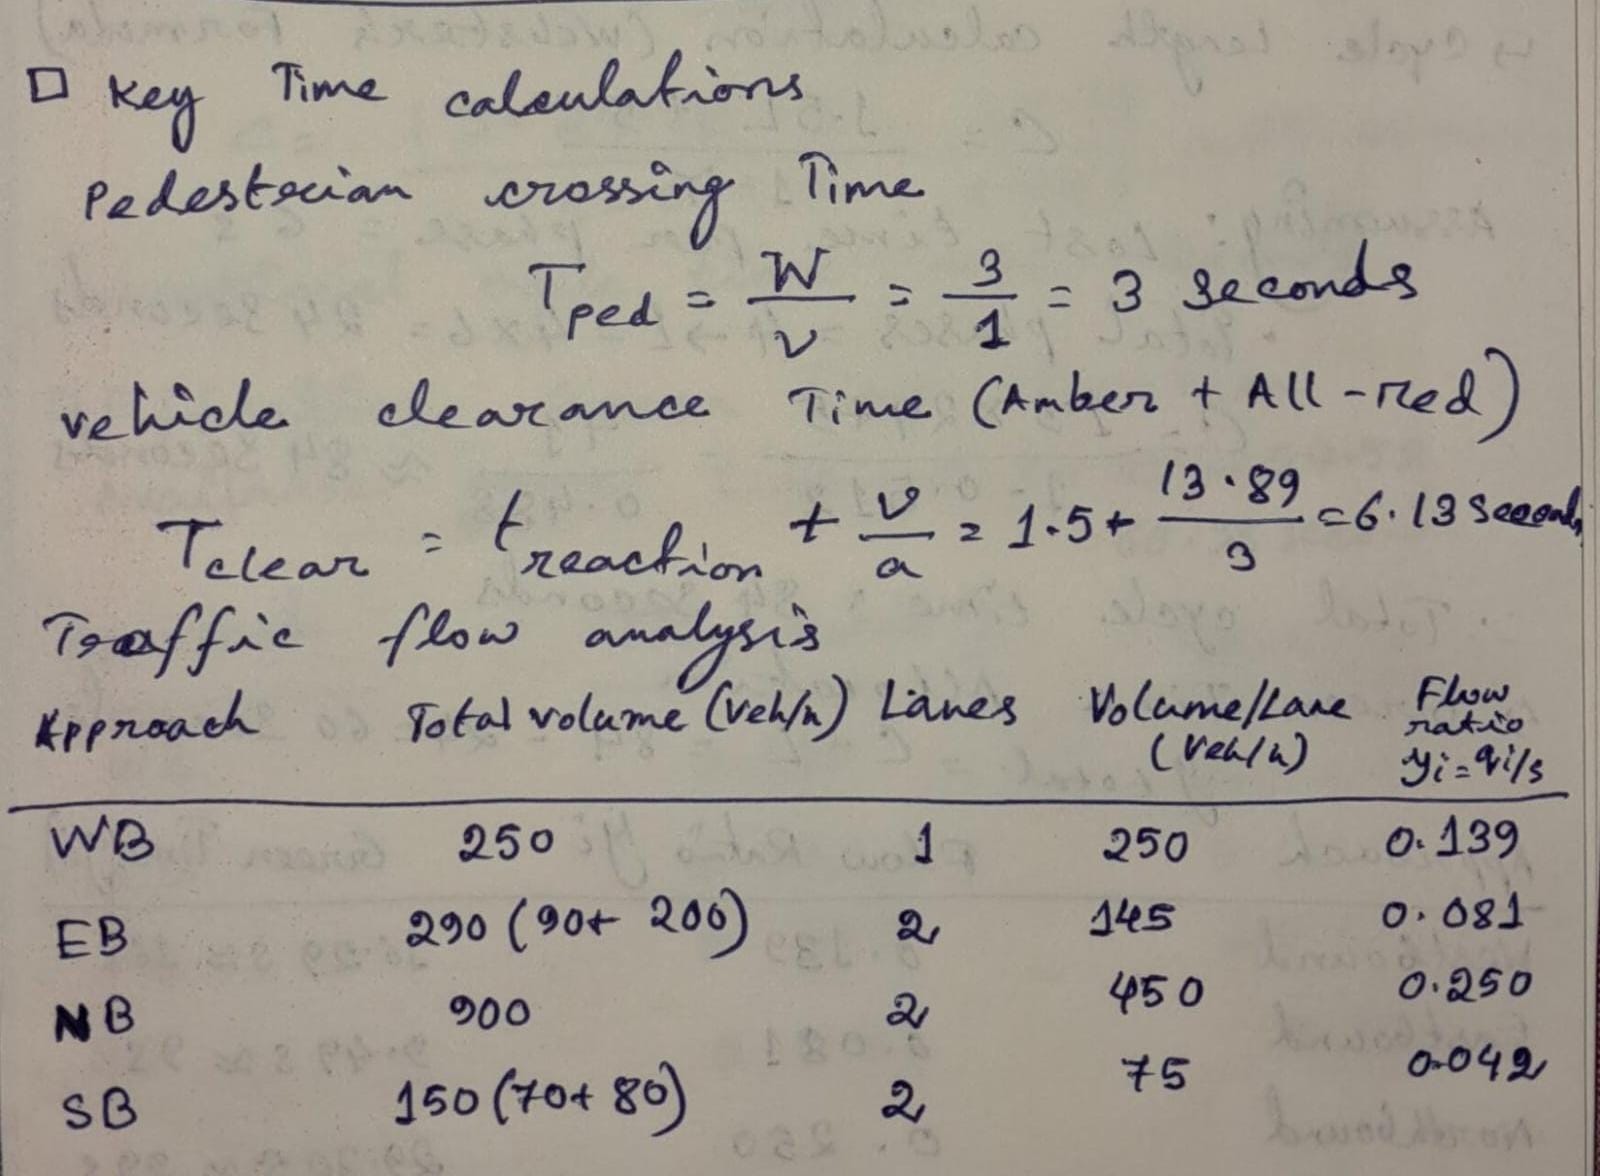 □ Key Time calculations
Pedestrian crossing Time
Tped = W/v = 3/1 = 3 seconds
vehicle clearance Time (Amber + All-red)
Tclear = treaction + v/a = 1.5 + 13.89/3 = 6.13 Seconds
Traffic flow analysis
Approach Total volume (Veh/h) Lanes Volume/Lane (Veh/h) Flow ratio yi = qi/s
WB 250 1 250 0.139
EB 290 (90+ 200) 2 145 0.081
NB 900 2 450 0.250
SB 150 (70+ 80) 2 75 0.042